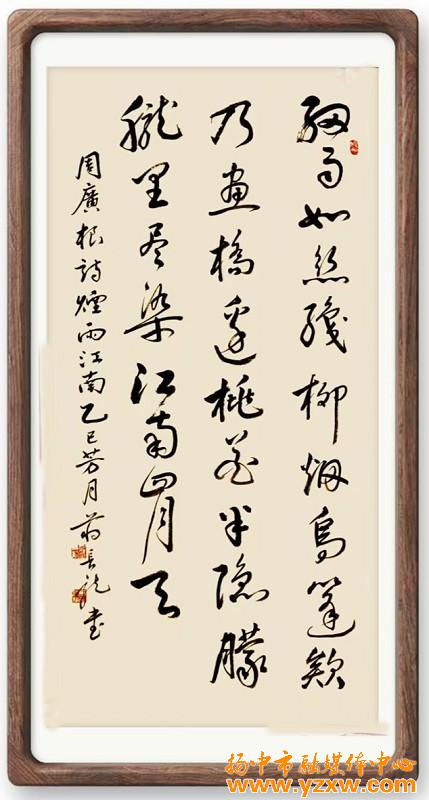 細雨如絲織柳烟烏篷欸
乃畫橋邊桃花半隐朦
朧里尽染江南四月天
周廣根詩煙雨江南乙巳芳月蒋長書
扬中市融媒体中心
www.yzxw.com